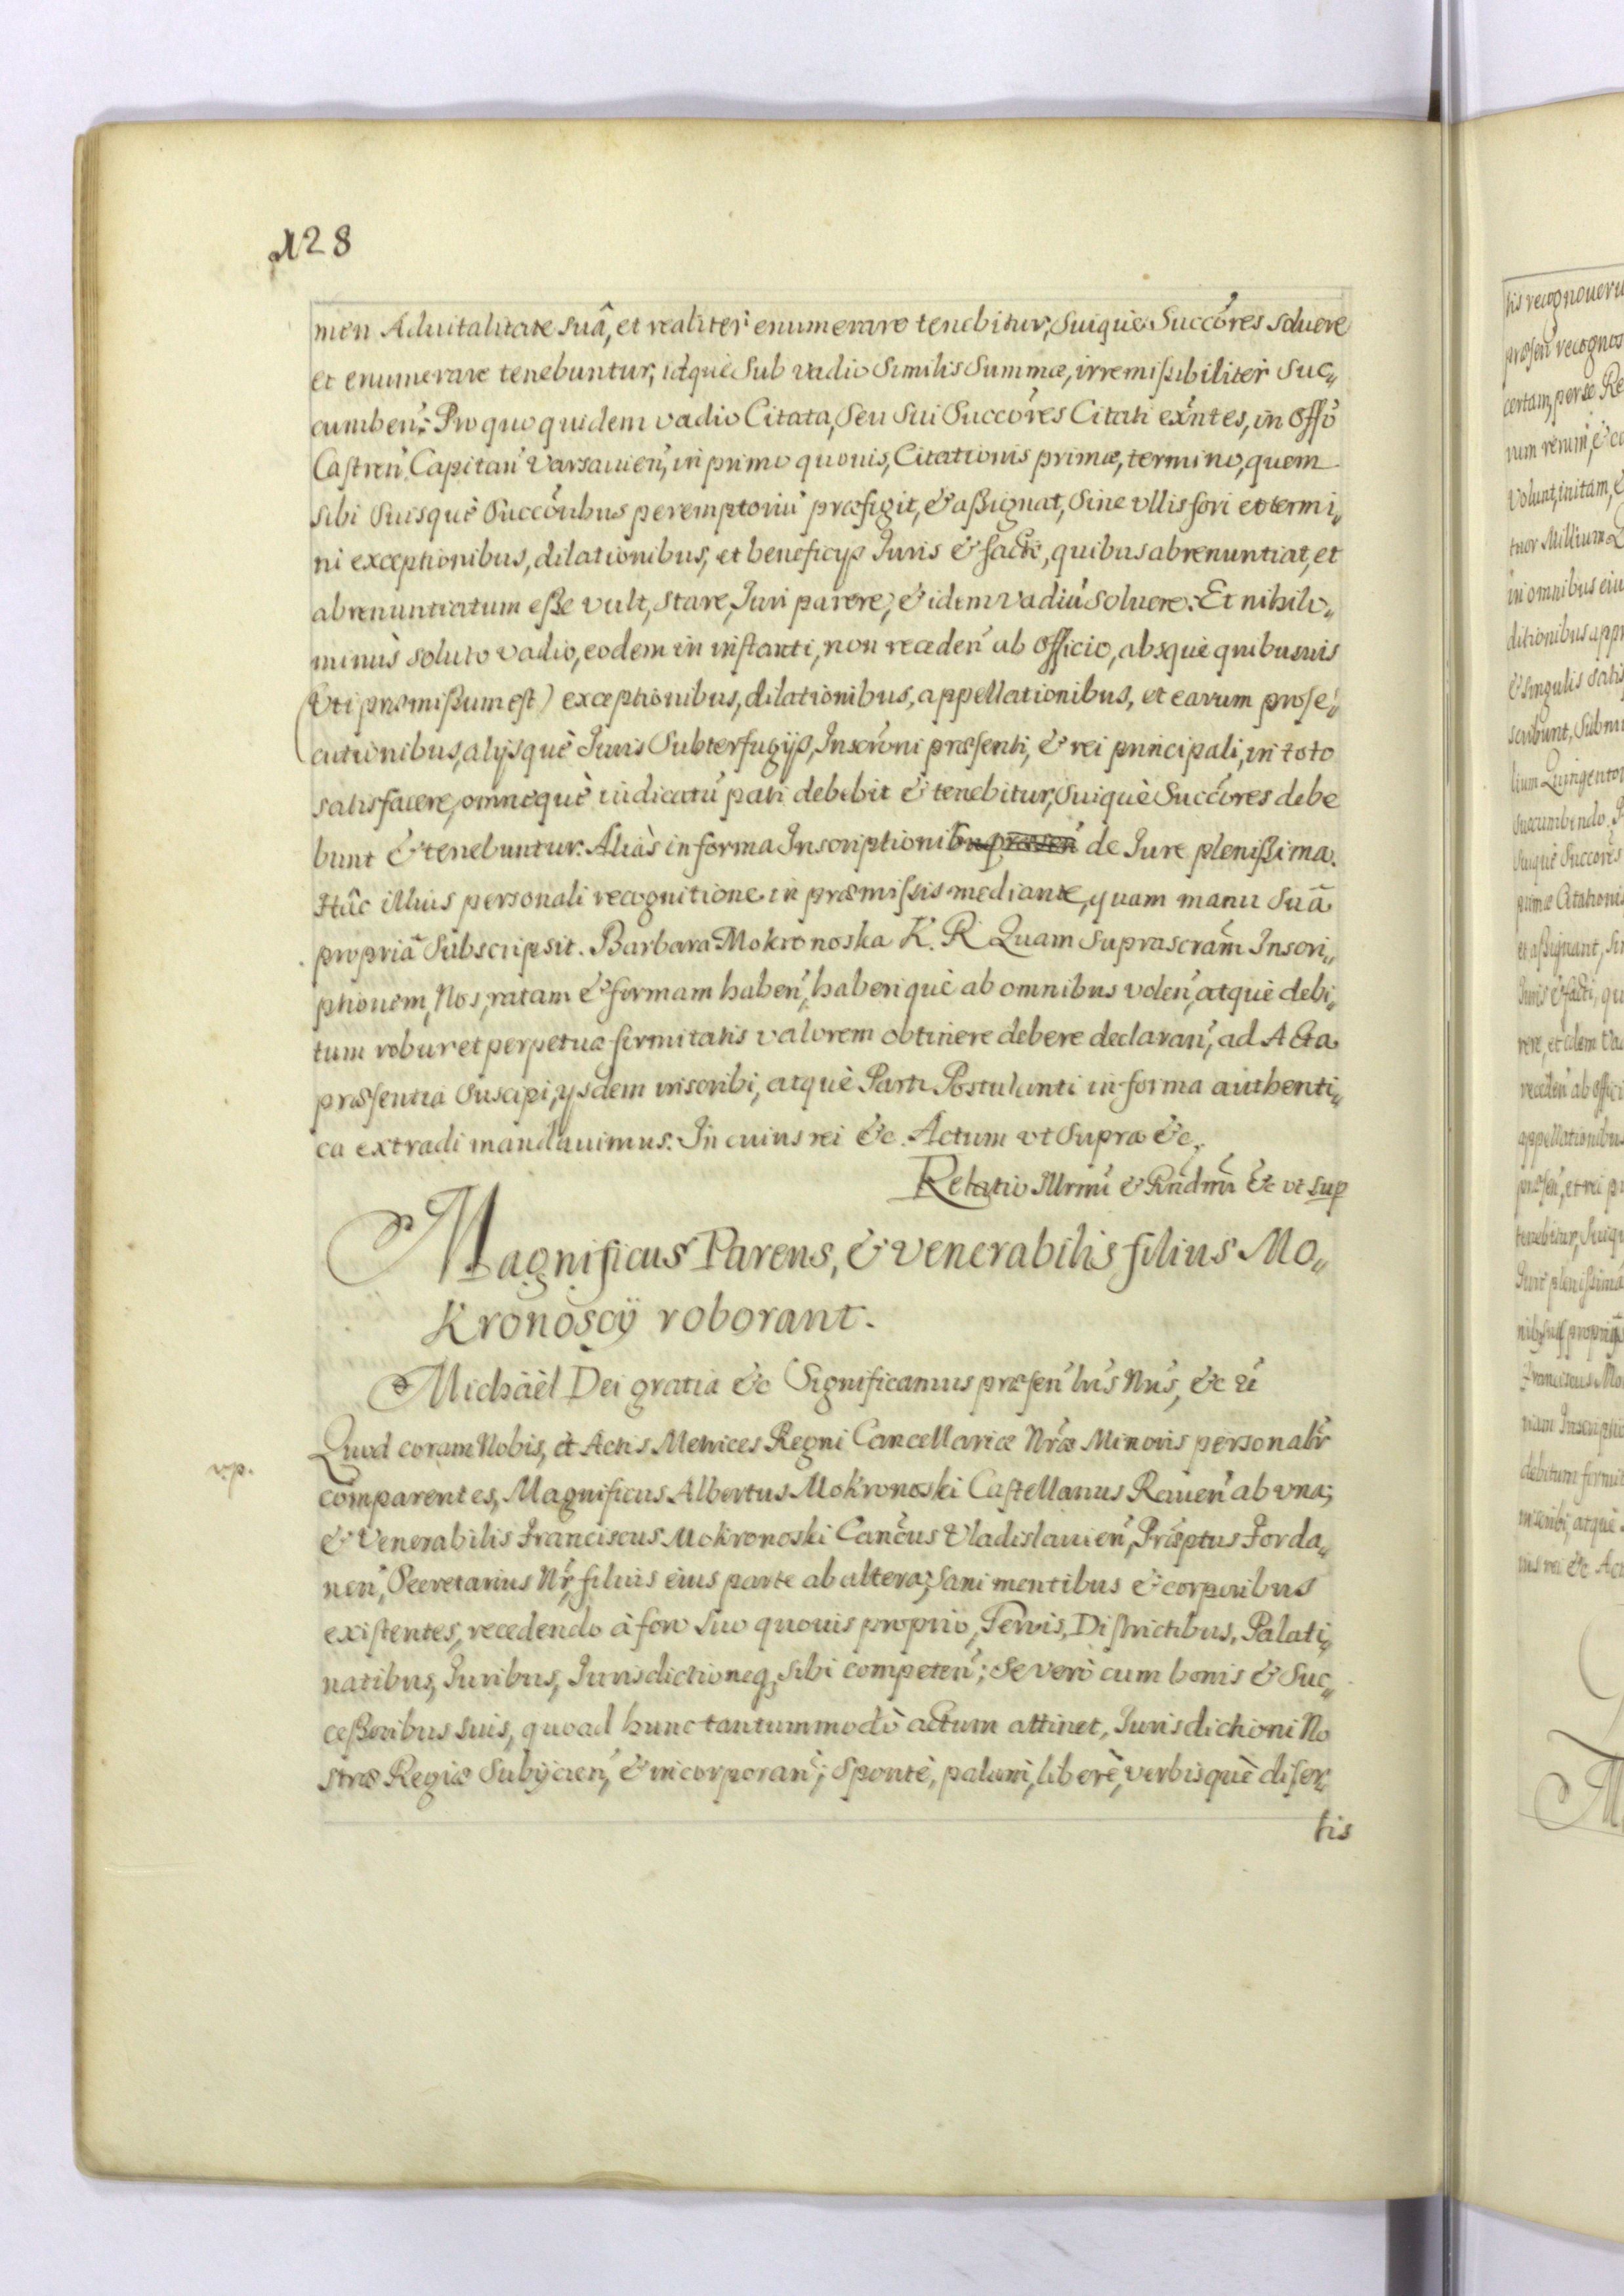 128
men Aduitalitate suâ, et realiter enumerare tenebitur, Suiquè Succ̃ores soluere
et enumerare tenebuntur, idquè sub vadio similis summæ, irremissibiliter suc„
cumben̄. Pro quo quidem vadio Citata, seu sui Succ̃ores Citati ex̃ntes, in Offõ
Castren̄ Capitan̄ Varsauien̄, in primo quouis, Citationis primæ, termino, quem
sibi suisquè Succ̃oribus peremptoriũ præfigit, & assignat, sine vllis fori et termi„
ni exceptionibus, dilationibus, et beneficijs Iuris & facti, quibus abrenuntiat, et
abrenuntiatum esse vult, stare, Iuri parere, & idem vadiũ soluere. Et nihilo„
minùs soluto vadio, eodem in instanti, non receden̄ ab Officio, absquè quibusuis
(vti præmissum est) exceptionibus, dilationibus, appellationibus, et earum prose„
cutionibus, alijsquè Iuris Subterfugijs, Inscr̃oni præsenti, & rei principali, in toto
satisfacere, omnequè iudicatũ pati debebit & tenebitur, Suiquè Succ̃ores debe
bunt & tenebuntur. Aliàs in forma Inscriptioni de Iure plenissima.
Hâc illius personali recognitione in præmissis mediante, quam manu suâ
propriâ subscripsit. Barbara Mokronoska K. R. Quam suprascr̃am Inscri„
ptionem, Nos, ratam & firmam haben̄, haberiquè ab omnibus volen̄, atquè debi„
tum robur et perpetuæ firmitatis valorem obtinere debere declaran̄, ad Acta
præsentia suscipi, ysdem inscribi, atquè Parti Postulanti in forma authenti„
ca extradi mandauimus. In cuius rei &c. Actum vt supra &c.
Relatio Illrm̃i & Rnd̃mi &c vt sup
Magnificus Parens, & venerabilis filius Mo„
Kronoscÿ roborant.
Michäèl Dei gratia &c Significamus præsen̄ bus Nr̃is, &c
v.p.
Quod coram Nobis, et Actis Metrices Regni Cancellariæ Nr̃æ Minoris personalr̃
comparentes, Magnificus Albertus Mokronoski Castellanus Rauen̄ ab vna;
& Venerabilis Franciscus Mokronoski Can̄cus Vladislauien̄, Præptus Iorda„
nen̄, Secretarius Nr̃, filius eius parte ab altera, sani mentibus & corporibus
existentes, recedendo à foro suo quouis proprio, Terris, Districtibus, Palati„
natibus, Iuribus, Iurisdictioneq, sibi competen̄; se verò cum bonis & suc„
cessoribus suis, quoad hunc tantummodò actum attinet, Iurisdictioni No
stræ Regiæ subijcien̄, & incorporan̄; spontè, palam, liberè, verbisquè diser„
tis